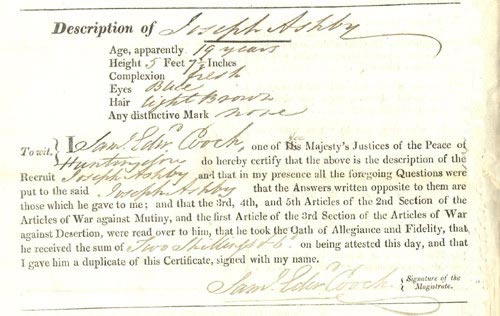 Description of Joseph Ashby
Age, apparently 19 years
Height 5 Feet 7½ Inches
Complexion fresh
Eyes Blue
Hair light Brown
Any distinctive Mark none
To wit. I Saml. Edwd. Cooch, one of His Majesty's Justices of the Peace of
do hereby certify that the above is the description of the
Recruit Joseph Ashby and that in my presence all the foregoing Questions were
put to the said Joseph Ashby that the Answers written opposite to them are
those which he gave to me; and that the 3rd, 4th, and 5th Articles of the 2nd Section of the
Articles of War against Mutiny, and the first Article of the 3rd Section of the Articles of War
against Desertion, were read over to him, that he took the Oath of Allegiance and Fidelity, that
he received the sum of Two Shillings & 6d. on being attested this day, and that
I gave him a duplicate of this Certificate, signed with my name.
Saml. Edwd. Cooch { Signature of the
Magistrate.